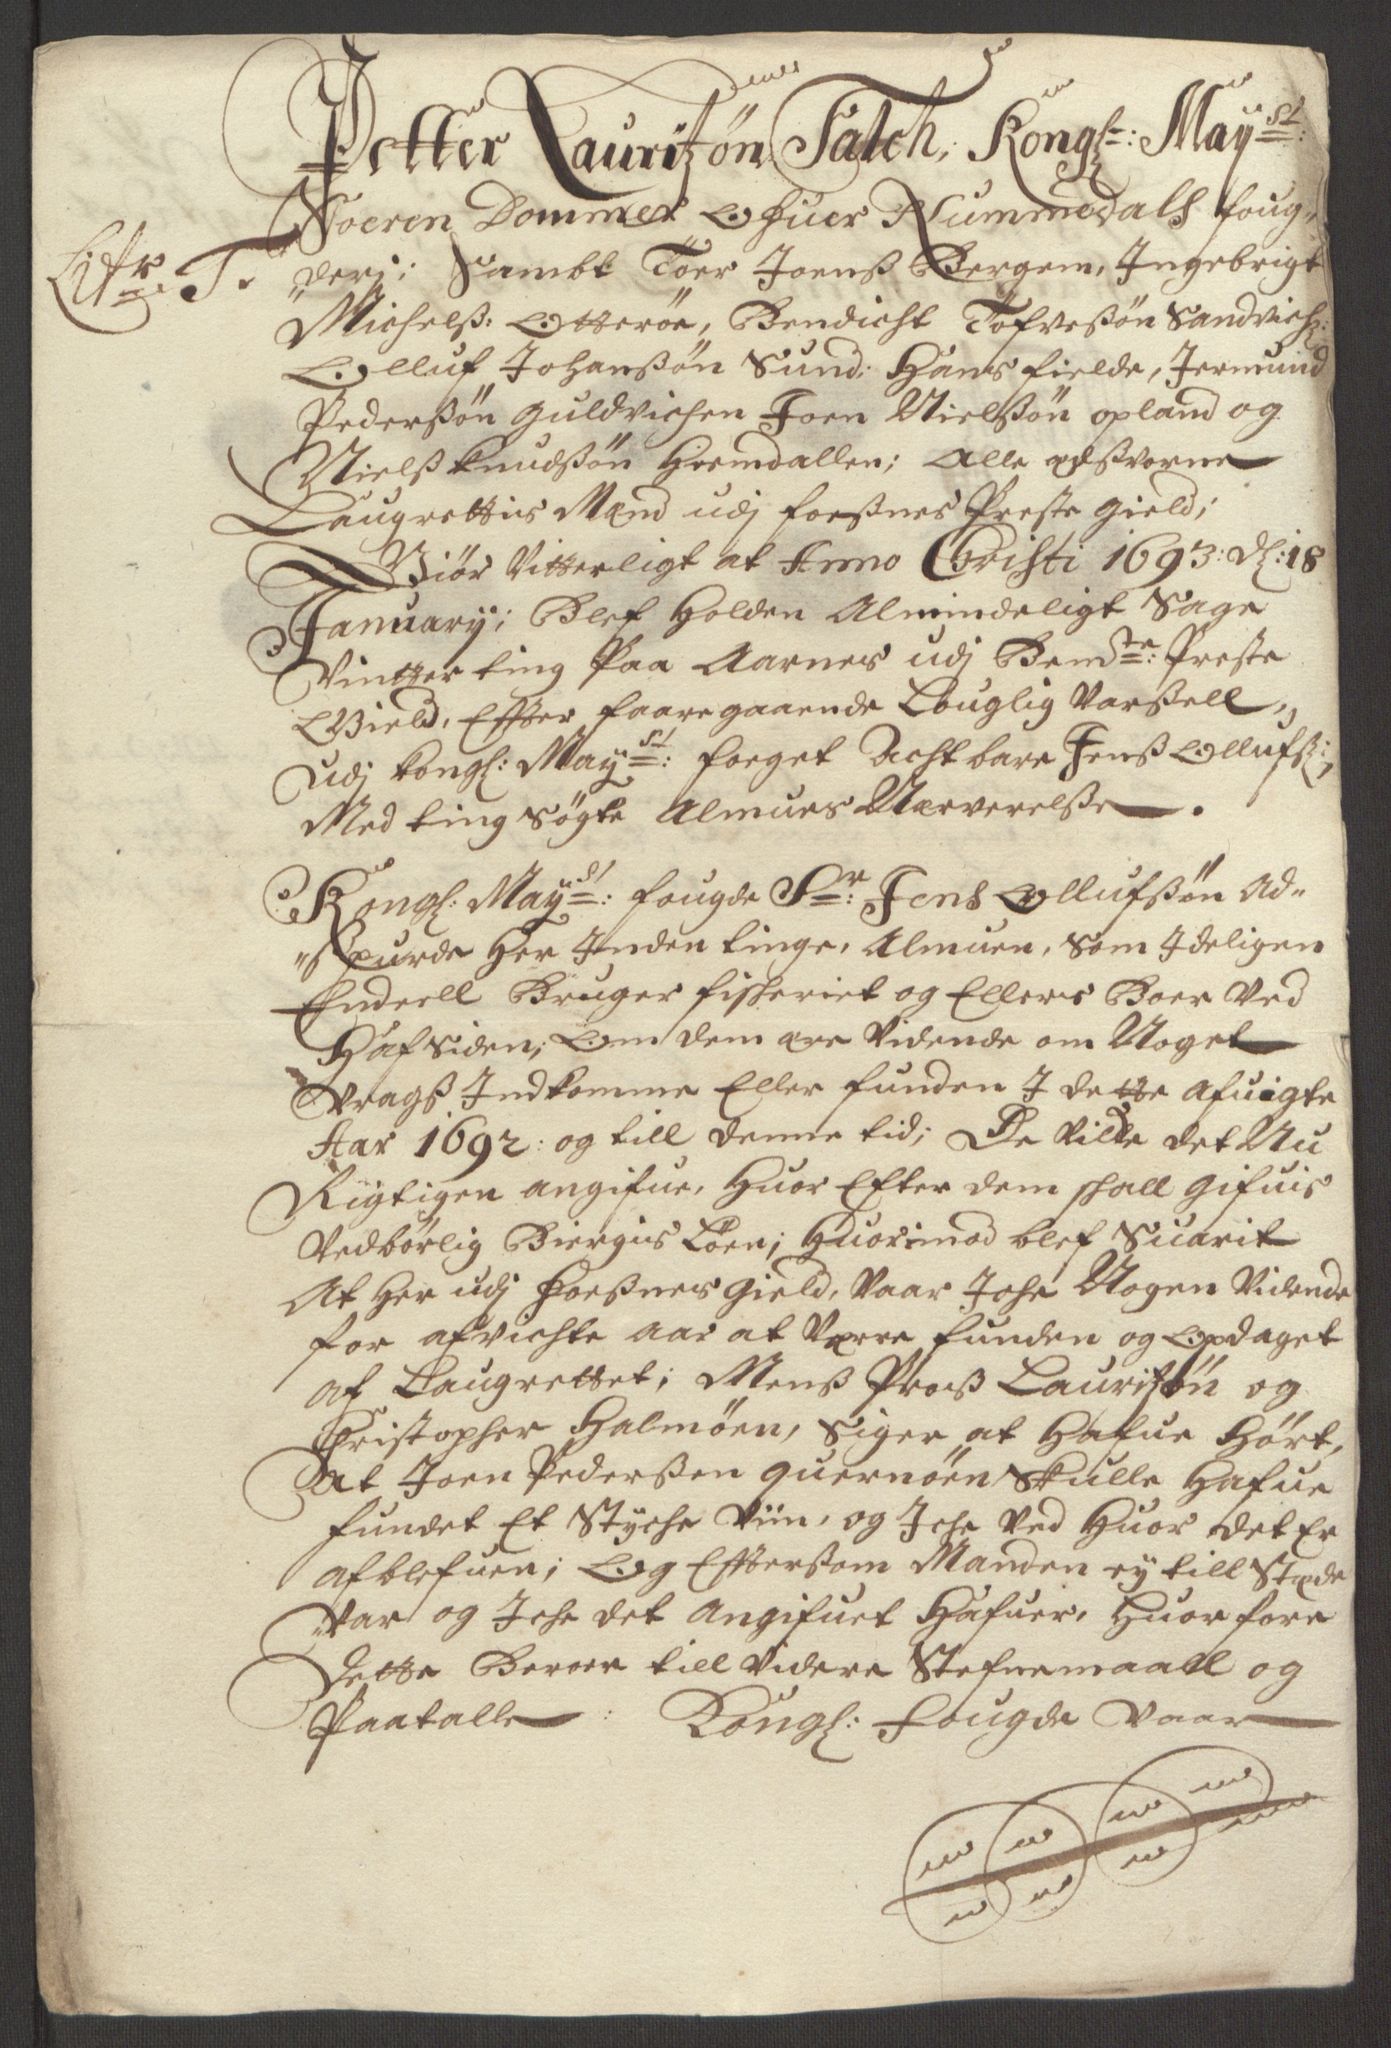 Petter Lauritzøn Falch, Kongl: May:st:
Soeren Dommer Ofuer Nummedals foug„
Litr. T.
„deri; Sambt Töer Joenß Bergem, Ingebrigt
Michelß: Otterøe, Bendicht Töfveßøn Sandvich:
Olluf Johanßøn Sund: Hans fielde, Jermund
Pederßøn Guldvichen Joen Nielßøn opland og
Nielß Knudßøn Heemdallen; Alle edßvorne
Laugrettis Mænd udj foeßnes Preste gield;
Giör Vitterligt at Anno Christi 1693: dl: 18
January; Blef Holden Almindeligt Sage
Vintter ting Paa Aarnes udj Bemdte: Preste
Gield, Effter faaregaaende Louglig Varßell,
udj kongl: May:st: foeget Achtbare Jenß Ollufß:,
Med ting søgte Almues Nærverelße.
Kongl: May:st: fougde Sr: Jens Ollufßøn Ad„
„spurde Her Inden tinge, Almuen, som Ideligen
Endeell Bruger fisheriet og Ellers Boer Ved
Hafsiden; Om dem ere Vidende om Noget
Vragß Indkomme Eller funden I dette afuigte
Aar 1692: og till denne tid; De Vilde det Nu
Rigtigen angifue, Huor Efter dem shall gifuis
Vedbörlig Biergnis Löen; Huorimod blef Suarit
At Her udj foeßnes gield, Vaar Iche Nogen Vidende
for afvichte aar at Værre funden og Opdaget
af Laugrettet; Menß Proß Lauritzøn og
Christopher Halmöen, siger at Hafue Hört,
At Joen Pederßen quernöen Skulle Hafue
fundet Et Styche Viin, og Iche Ved Huor det Er
afblefuen; Og Effterßom Manden ey till Stæde
var og Iche det Angifuet Hafuer, Huor fore
dette Beroer till Videre Stefnemaall og
Paatalle: Kongl: Fougde Vaar